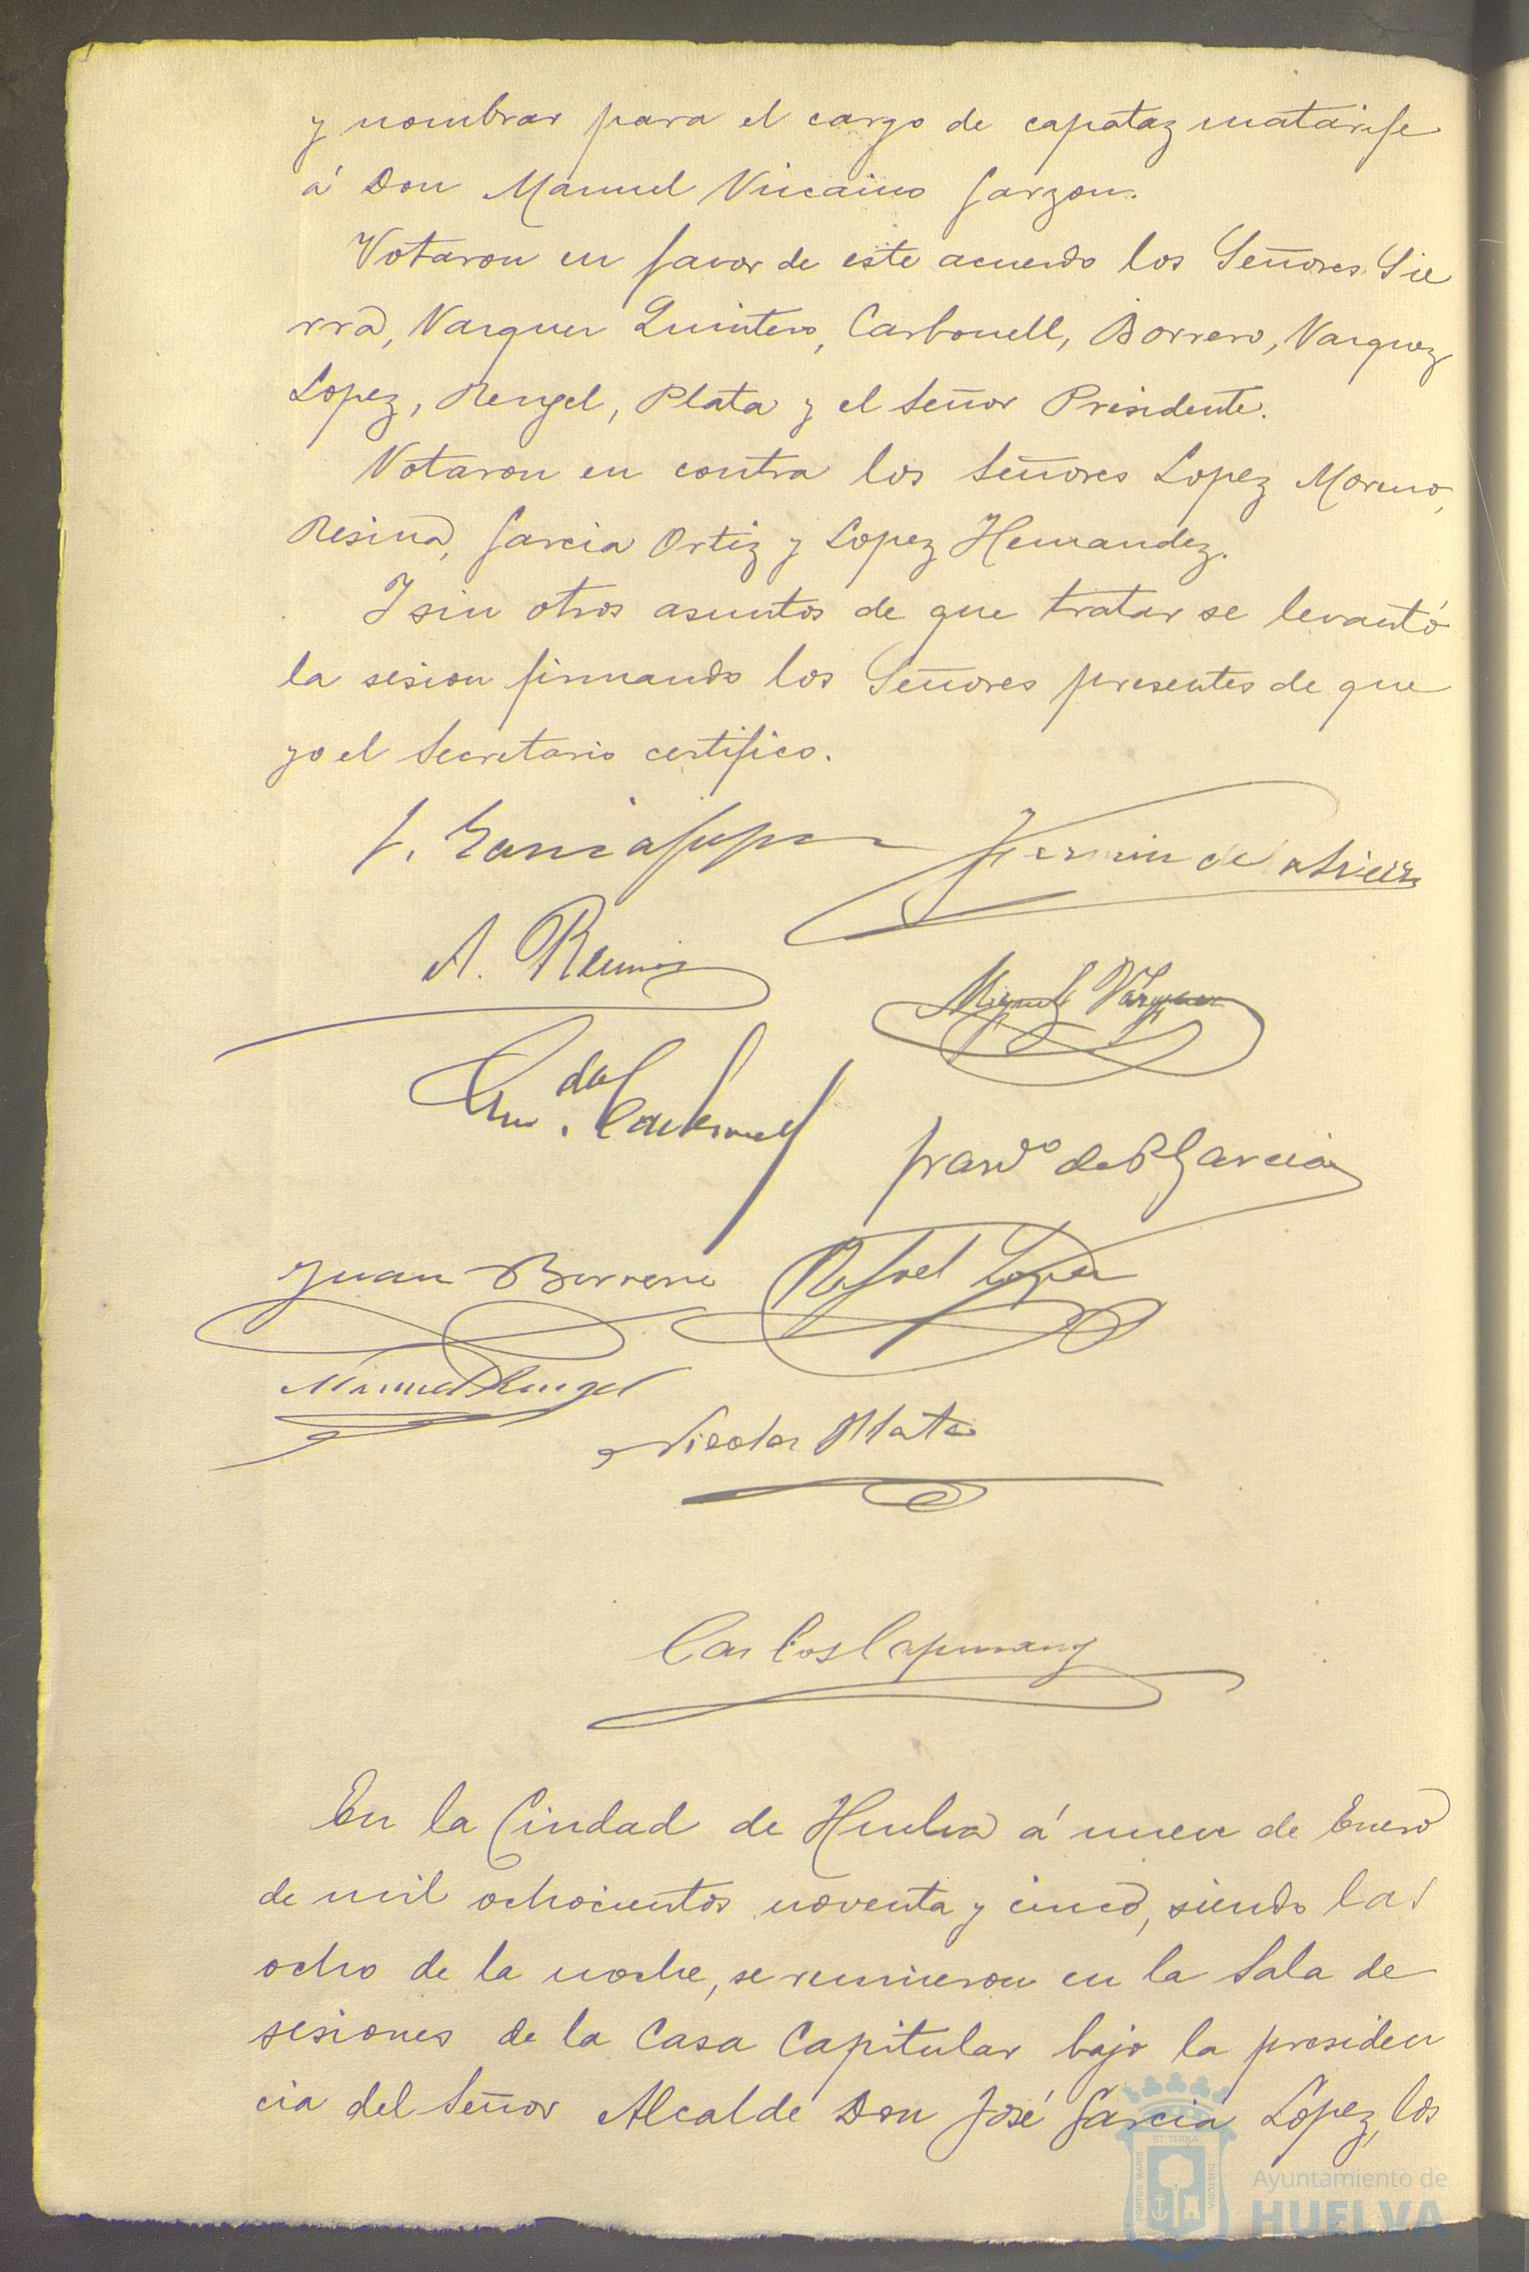 y nombrar para el cargo de capataz matarife
á Don Manuel Vizcaino Garzon.
Votaron en favor de este acuerdo los Señores Sie
rra, Vazquez Quintero, Carbonell, Borrero, Vazquez
Lopez, Rengel, Plata y el Señor Presidente.
Votaron en contra los Señores Lopez Moreno,
Resina, Garcia Ortiz y Lopez Hernandez.
Y sin otros asuntos de que tratar se levantó
la sesion firmando los Señores presentes de que
yo el Secretario certifico.
J. Garcia Lopez
Fermin de la Sierra
A.
Miguel Vázquez
Carbonell
Franco de P Garcia
Juan Borrero
Rafael Lopez
Manuel Rengel
Nicolas Plata
Carlos
En la Ciudad de Huelva á nueve de Enero
de mil ochocientos noventa y cinco, siendo las
ocho de la noche, se reunieron en la Sala de
sesiones de la Casa Capitular bajo la presiden
cia del Señor Alcalde Don José Garcia López, los
PORTUS MARIS ET TERRÆ CUSTODIA
Ayuntamiento de
HUELVA